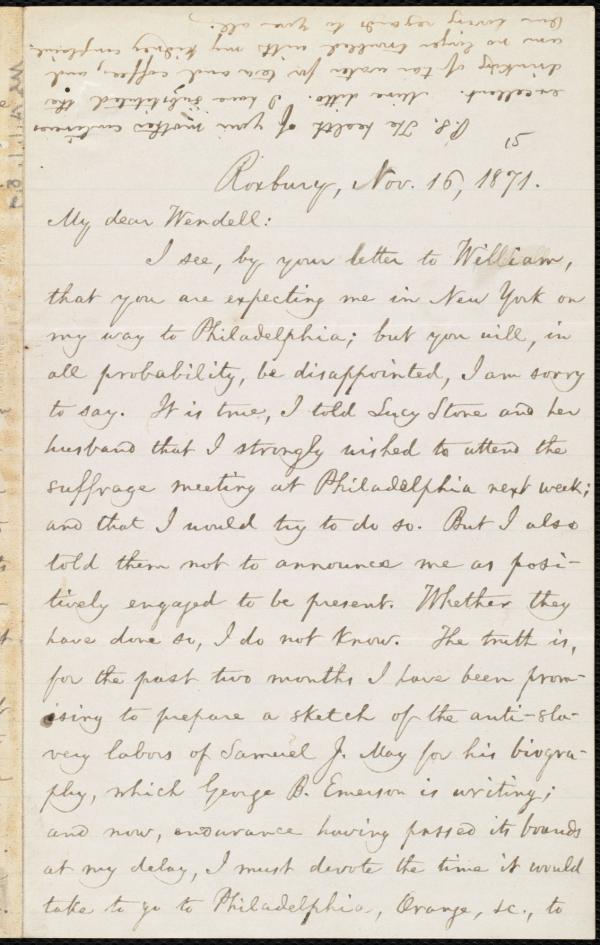 15
Roxbury, Nov. 16, 1871.
My dear Wendell:
I see, by your letter to William,
that you are expecting me in New York on
my way to Philadelphia; but you will, in
all probability, be disappointed, I am sorry
to say. It is true, I told Lucy Stone and her
husband that I strongly wished to attend the
suffrage meeting at Philadelphia next week;
and that I would try to do so. But I also
told them not to announce me as posi-
tively engaged to be present. Whether they
have done so, I do not know. The truth is,
for the past two months I have been prom-
ising to prepare a sketch of the anti-sla-
very labors of Samuel J. May for his biogra-
phy, which George B. Emerson is writing;
and now, endurance having passed its bounds
at my delay, I must devote the time it would
take to go to Philadelphia, Orange, &c., to
P.S. The health of your mother continues
excellent. Mine ditto. I have substituted the
drinking of tar water for tea and coffee, and
am no longer troubled with my kidney complaint.
Our loving regards to you all.